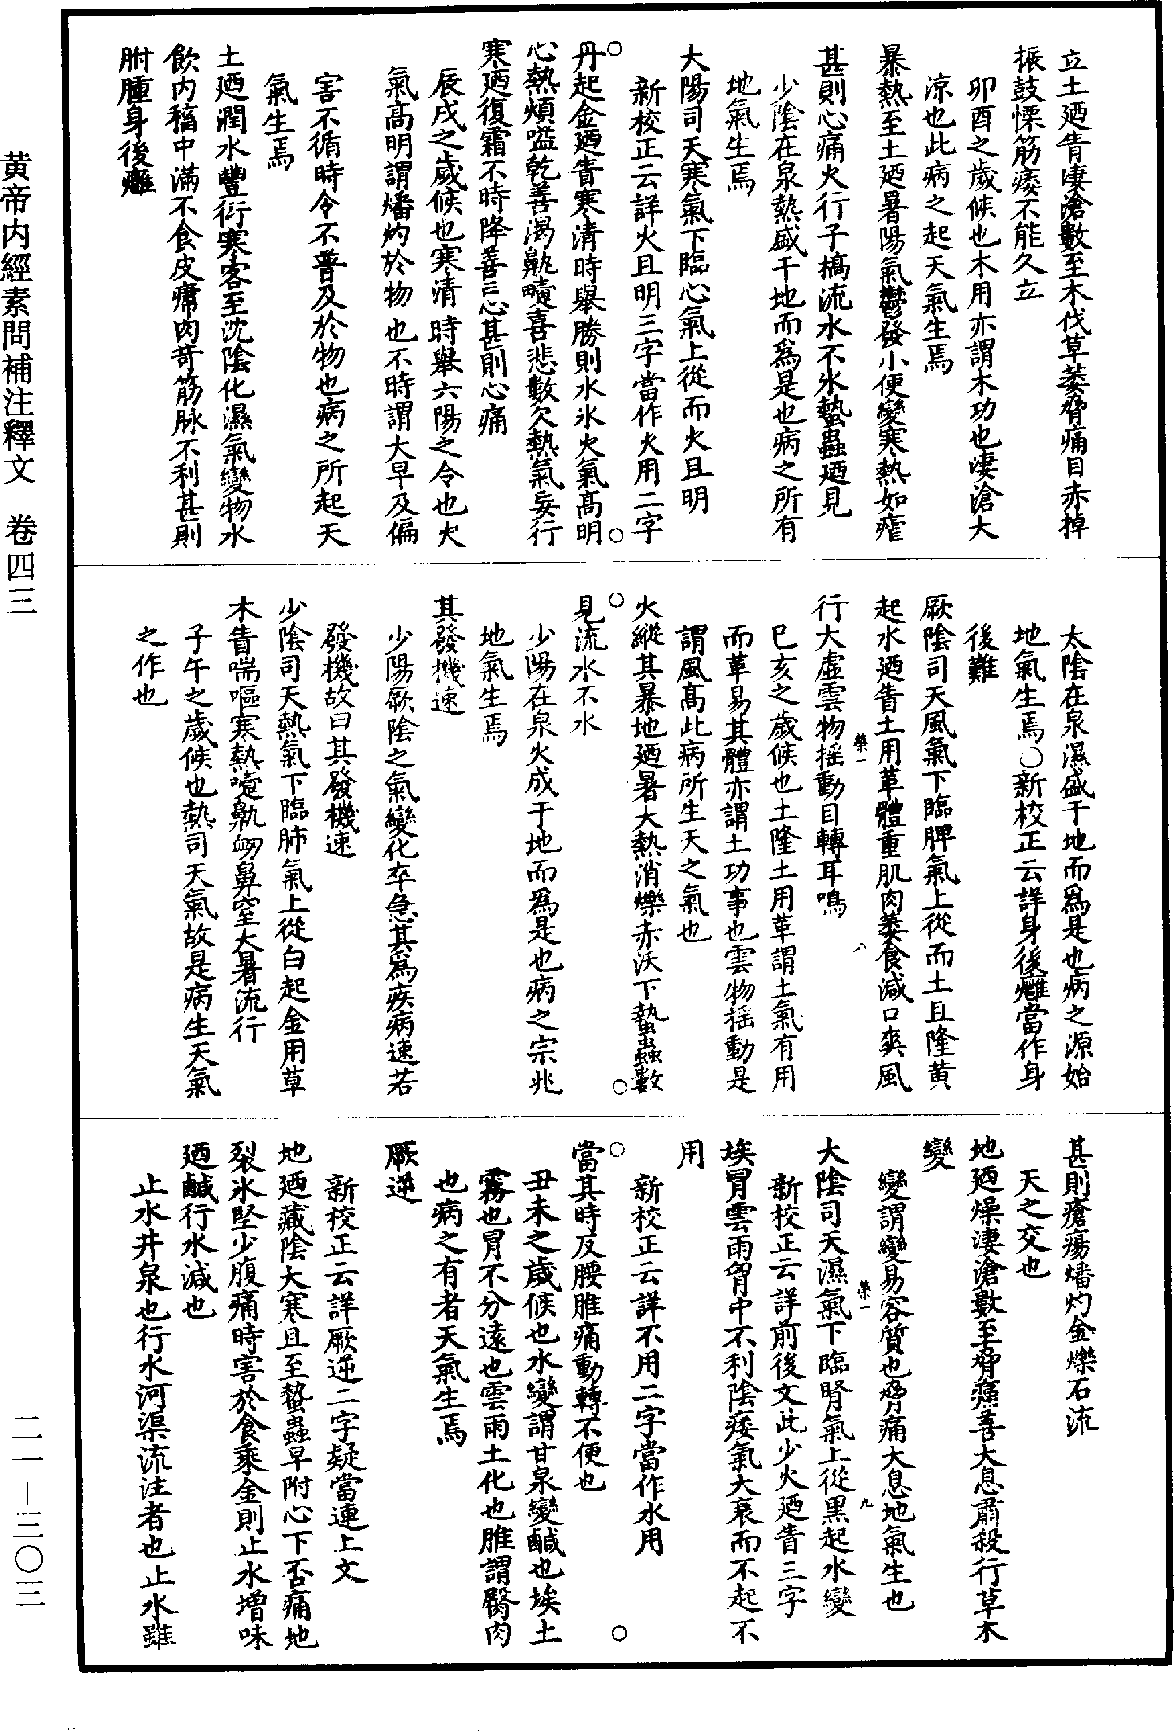 立土廼眚淒滄數至木伐草萎脅痛目赤掉
振鼓慄筋痿不能久立
卯酉之歲候也木用亦謂木功也淒滄大
涼也此病之起天氣生焉
暴熱至土廼暑陽氣鬱發小便變寒熱如瘧
甚則心痛火行于槁流水不氷蟄蟲廼見
少陰在泉熱盛于地而爲是也病之所有
地氣生焉
大陽司天寒氣下臨心氣上從而火且明
新校正云詳火且明三字當作火用二字
丹起金廼眚寒清時舉勝則水氷火氣高明
心熱煩嗌乾善渴鼽嚏喜悲數欠熱氣妄行
寒廼復霜不時降善忘甚則心痛
辰戌之歲候也寒清時舉六陽之令也火
氣高明謂燔灼於物也不時謂大早及偏
害不循時令不普及於物也病之所起天
氣生焉
土廼潤水豐衍寒客至沈陰化濕氣變物水
飲內稸中滿不食皮𤸷肉苛筋脉不利甚則
胕腫身後癰
太陰在泉濕盛于地而爲是也病之源始
地氣生焉○新校正云詳身後癰當作身
後難
厥陰司天風氣下臨脾氣上從而土且隆黃
起水廼眚土用革體重肌肉萎食減口爽風
行大虛雲物揺動目轉耳鳴
巳亥之歲候也土隆土用革謂土氣有用
而革易其體亦謂土功事也雲物揺動是
謂風高此病所生天之氣也
火縱其暴地廼暑大熱消爍赤沃下蟄蟲數
見流水不氷
少陽在泉火成于地而爲是也病之宗兆
地氣生焉
其發機速
少陽厥陰之氣變化卒急其爲疾病速若
發機故曰其發機速
少陰司天熱氣下臨肺氣上從白起金用草
木眚喘嘔寒熱嚏鼽衂鼻窒大暑流行
子午之歲候也熱司天氣故是病生天氣
之作也
甚則瘡瘍燔灼金爍石流
天之交也
地廼燥淒滄數至脅痛善大息肅殺行草木
變
變謂變易容質也脅痛大息地氣生也
大陰司天濕氣下臨腎氣上從黑起水變
新校正云詳前後文此少火廼眚三字
埃冒雲雨胷中不利陰痿氣大衰而不起不
用
新校正云詳不用二字當作水用
當其時反腰脽痛動轉不便也
丑未之歲候也水變謂甘泉變鹹也埃土
霧也冒不分遠也雲雨土化也脽謂臀肉
也病之有者天氣生焉
厥逆
新校正云詳厥逆二字疑當連上文
地廼藏陰大寒且至蟄蟲早附心下否痛地
裂氷堅少腹痛時害於食乘金則止水增味
廼鹹行水減也
止水井泉也行水河渠流注者也止水雖
黄帝内經素問補注釋文　卷四三
二一—三〇三